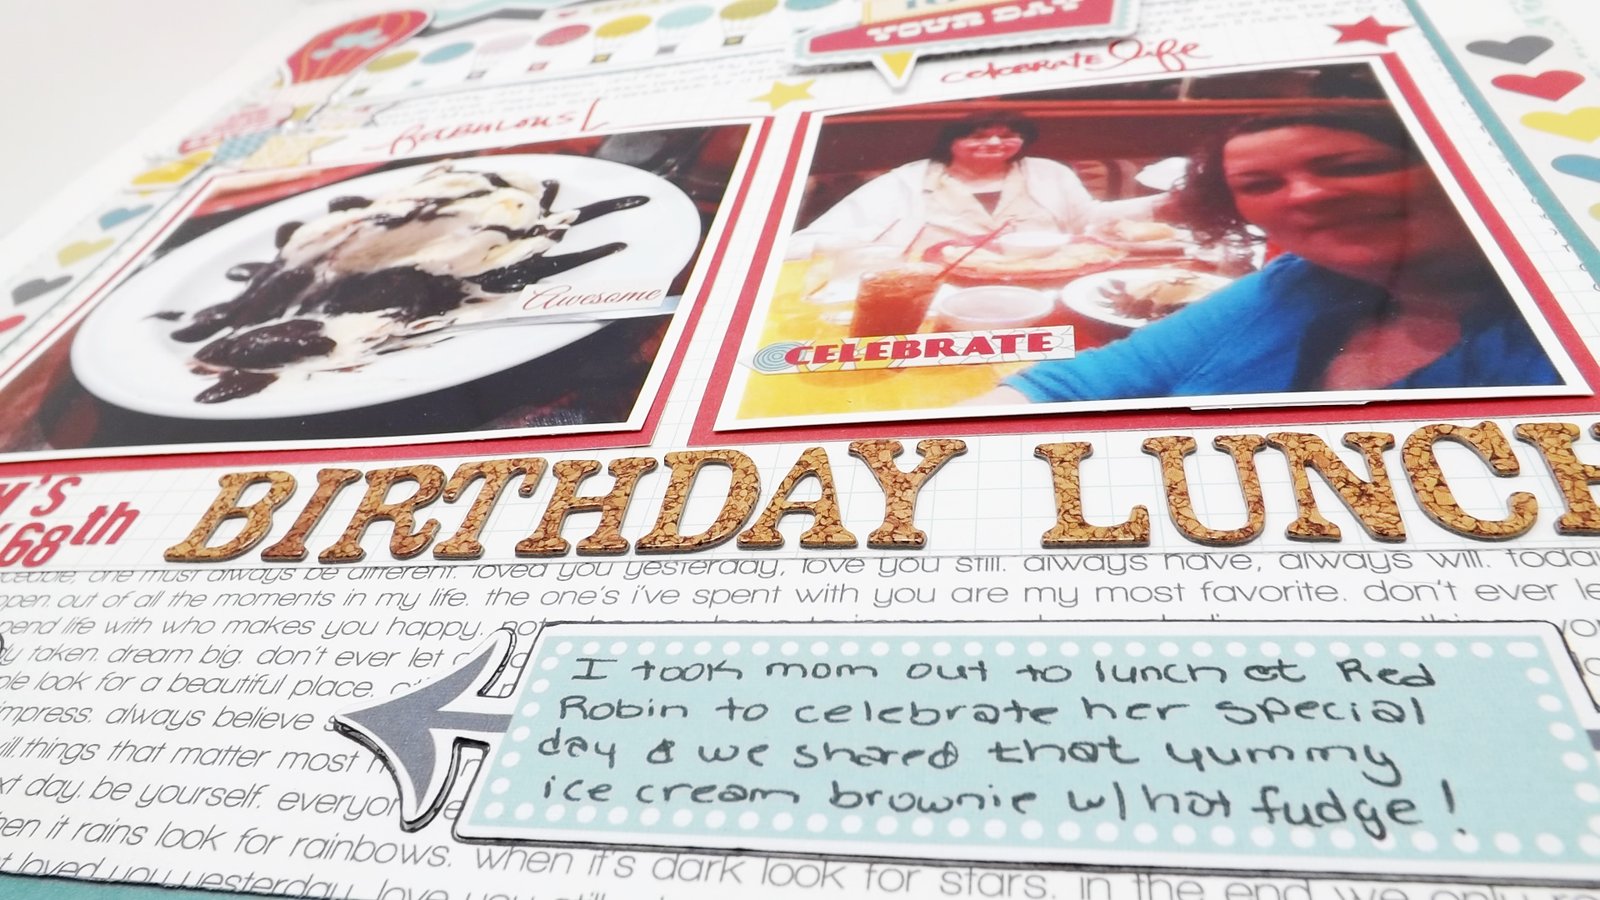 YOUR DAY
celebrate life
fabulous!
Awesome
CELEBRATE
68th
BIRTHDAY LUNCH
one must always be different. loved you yesterday, love you still. always have, always will.
out of all the moments in my life. the one's i've spent with you are my most favorite. don't ever
life with who makes you happy.
taken. dream big. don't ever let
look for a beautiful place.
impress. always believe
things that matter most
day. be yourself.
it rains look for rainbows. when it's dark look for stars. in the end we only
loved you yesterday, love you
I took mom out to lunch at Red
Robin to celebrate her special
day & we shared that yummy
ice cream brownie w/ hot fudge!